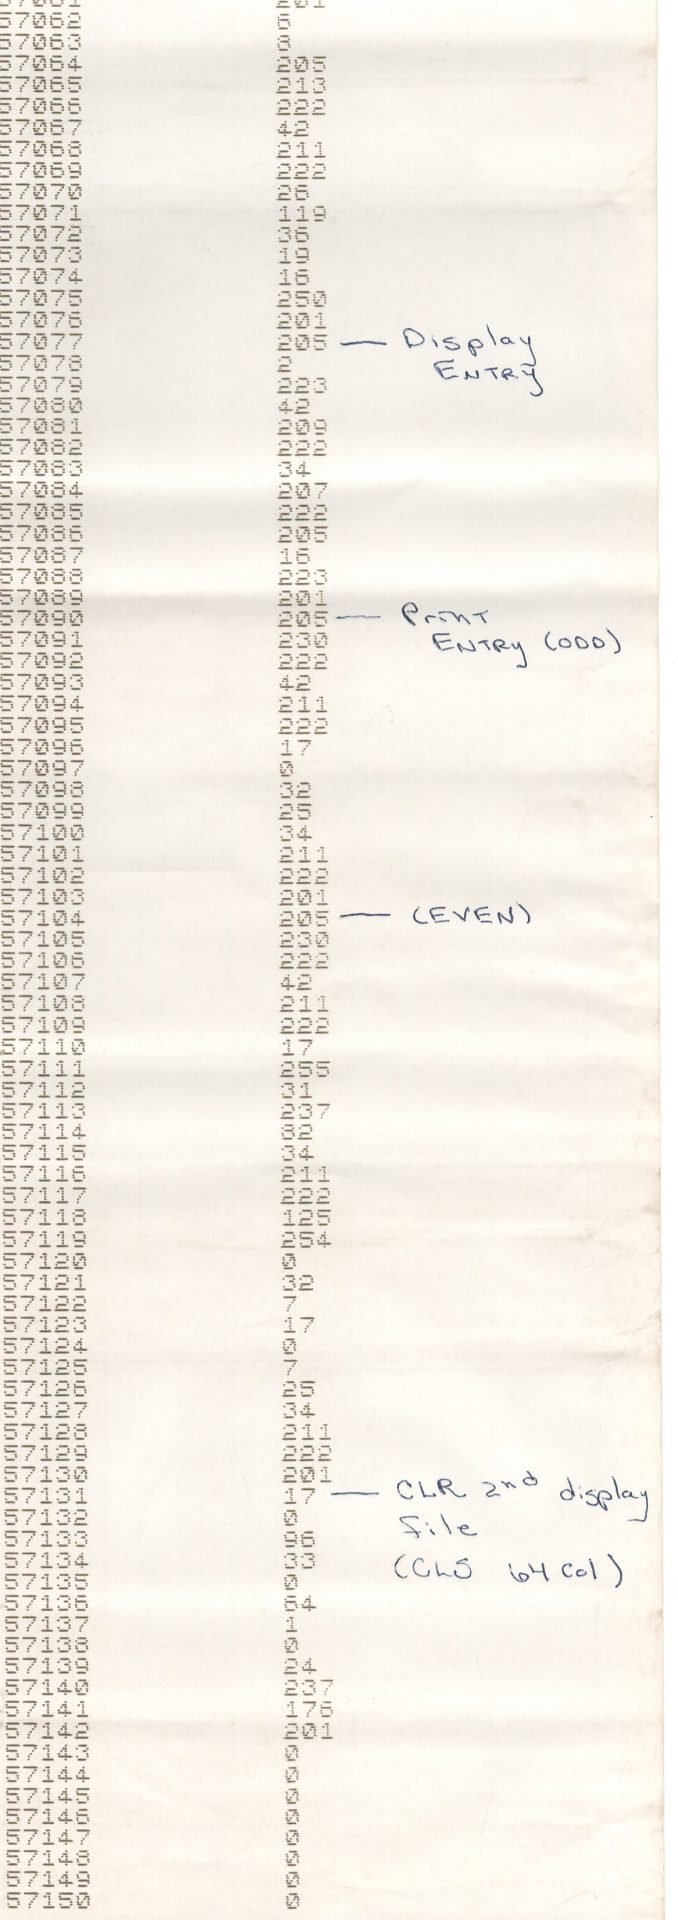 57061 201
57062 6
57063 8
57064 205
57065 213
57066 222
57067 42
57068 211
57069 222
57070 26
57071 119
57072 36
57073 19
57074 16
57075 250
57076 201
57077 205 — Display
57078 2 ENTRY
57079 223
57080 42
57081 209
57082 222
57083 34
57084 207
57085 222
57086 205
57087 16
57088 223
57089 201
57090 205 — Print
57091 230 ENTRY (ODD)
57092 222
57093 42
57094 211
57095 222
57096 17
57097 0
57098 32
57099 25
57100 34
57101 211
57102 222
57103 201
57104 205 — (EVEN)
57105 230
57106 222
57107 42
57108 211
57109 222
57110 17
57111 255
57112 31
57113 237
57114 82
57115 34
57116 211
57117 222
57118 125
57119 254
57120 0
57121 32
57122 7
57123 17
57124 0
57125 7
57126 25
57127 34
57128 211
57129 222
57130 201
57131 17 — CLR 2nd display
57132 0 file
57133 96
57134 33 (CLS 64 Col)
57135 0
57136 64
57137 1
57138 0
57139 24
57140 237
57141 176
57142 201
57143 0
57144 0
57145 0
57146 0
57147 0
57148 0
57149 0
57150 0